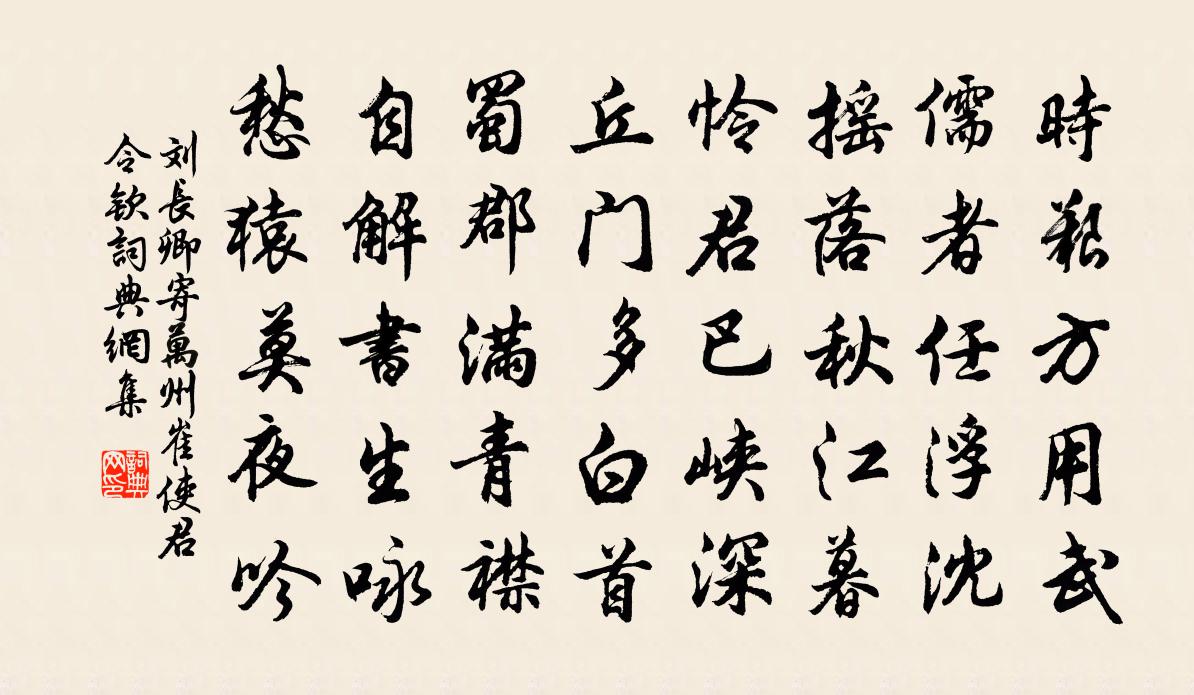 時艱方用武
儒者任浮沈
摇落秋江暮
怜君巴峽深
丘门多白首
蜀郡滿青襟
自解書生咏
愁猿莫夜吟
刘長卿寄萬州崔使君
令欽詞典網集
詞典网印